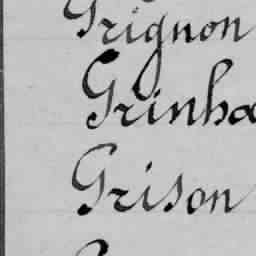 Grignon
Grinha
Grison